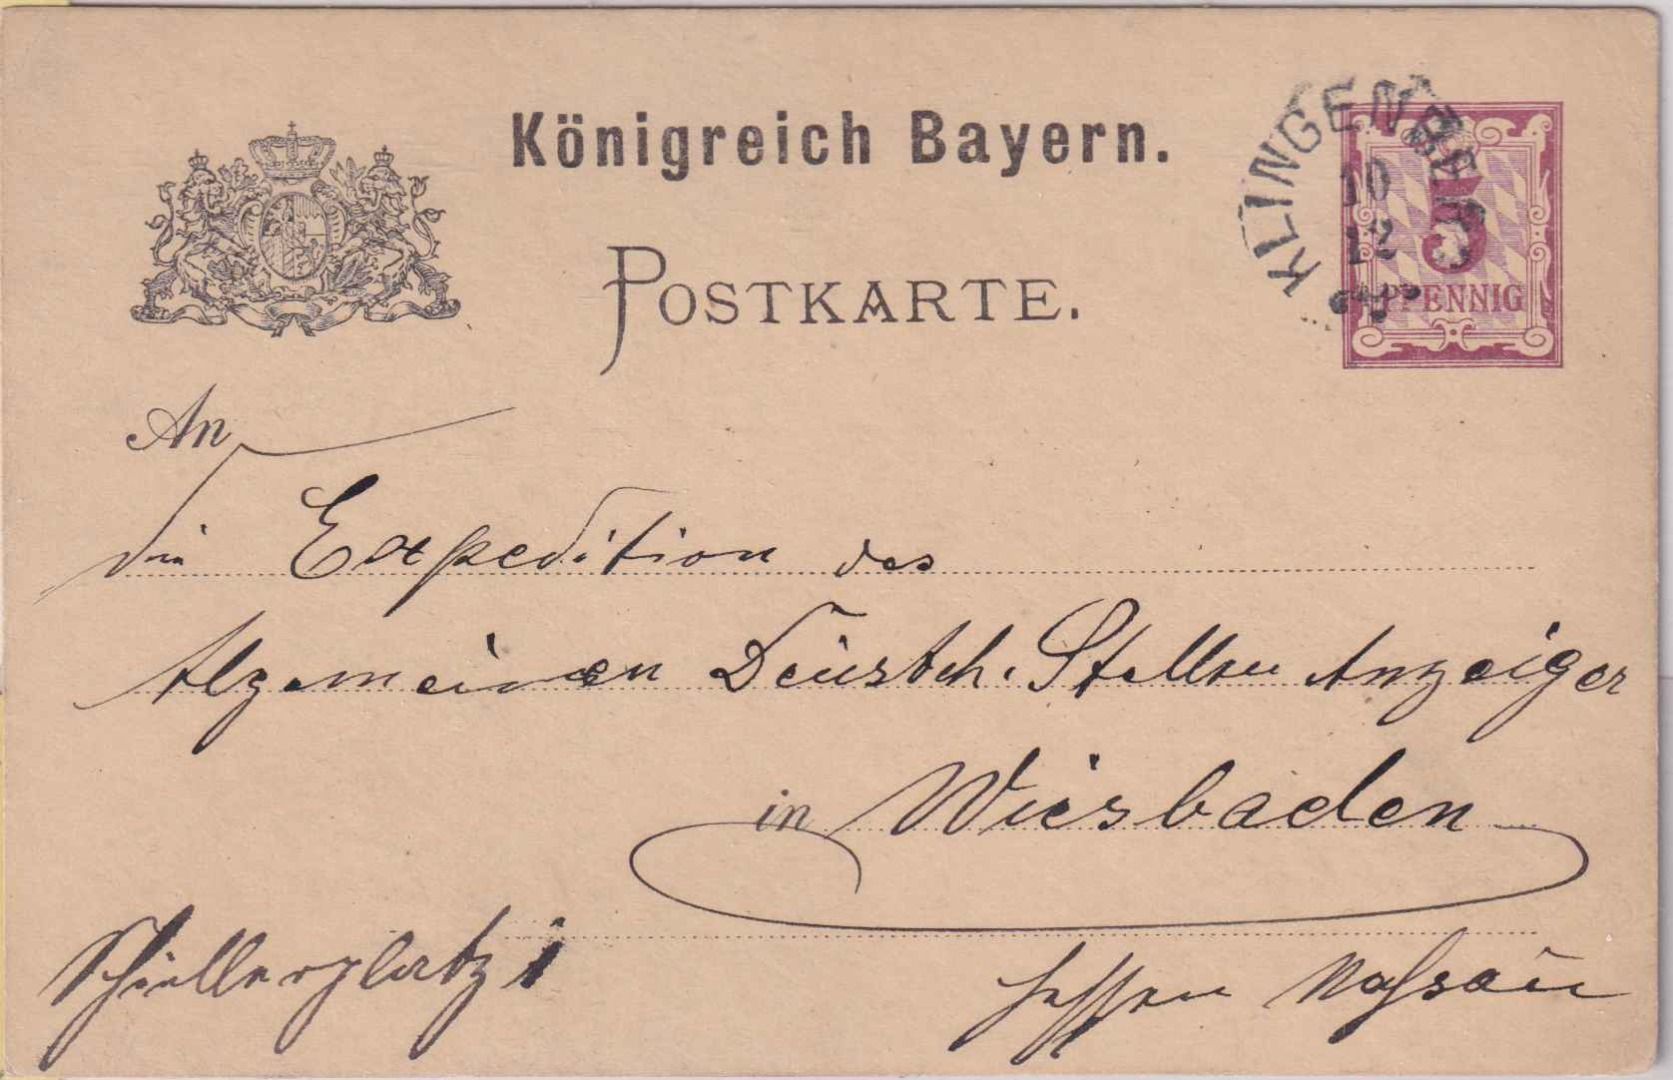 Königreich Bayern.
POSTKARTE.
KLINGENBERG
10
12
5
PFENNIG
An
die Expedition des
Algemeinen Deustch. Stellen Anzeiger
in Wiesbaden
Schillerplatz 1
Hessen Nassau